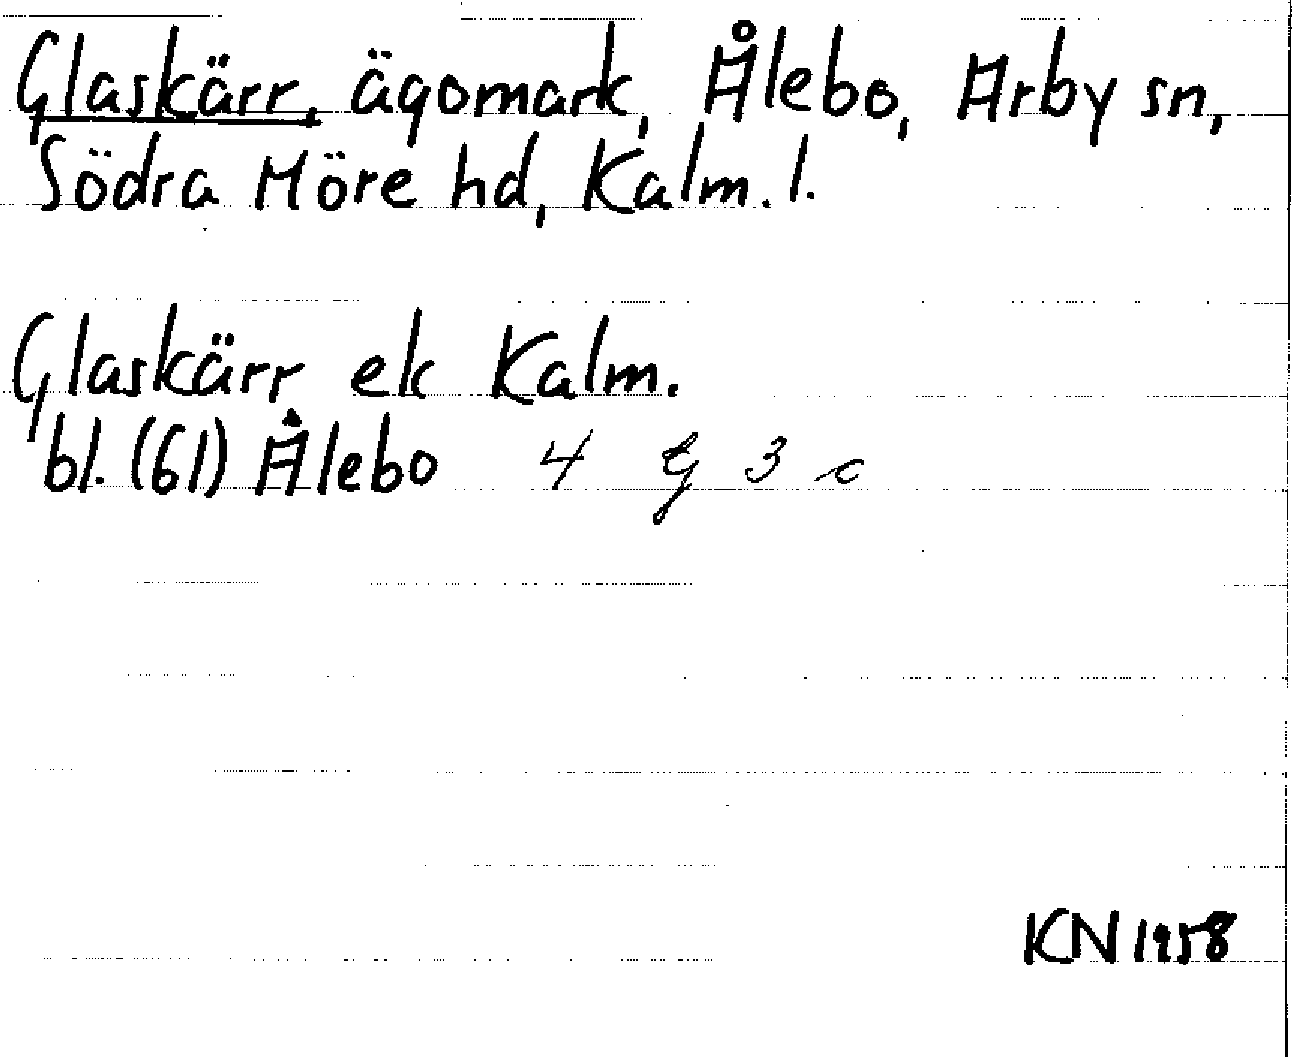 Glaskärr, ägomark, Ålebo, Arby sn,
Södra Möre hd, Kalm. l.
Glaskärr ek Kalm.
bl. (61) Ålebo 4 G 3 c
KN 1958